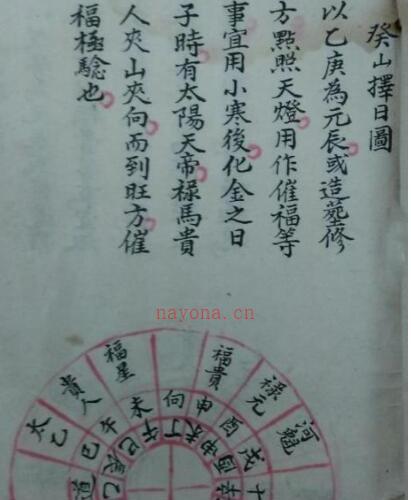 癸山擇日圖
以乙庚為元辰或造塟修
方㸃照天燈用作催福等
事宜用小寒後化金之日
子時有太陽天帝祿馬貴
人夾山夾向而到旺方催
福極驗也
nayona.cn
河魁
祿元
福貴
福星
貴人
太乙
戌
酉
申
向
未
午
巳
申
未
丁
午
巳